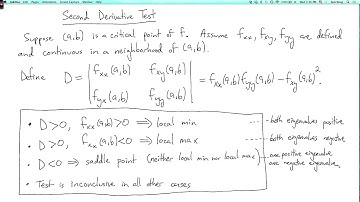 Second Derivative Test
Suppose (a,b) is a critical point of f. Assume fxx, fxy, fyy are defined
and continuous in a neighborhood of (a,b).
Define D = | fxx(a,b) fxy(a,b) | = fxx(a,b)fyy(a,b) - fxy(a,b)².
| fyx(a,b) fyy(a,b) |
• D>0, fxx(a,b)>0 ⟹ local min --- both eigenvalues positive.
• D>0, fxx(a,b)<0 ⟹ local max --- both eigenvalues negative.
• D<0 ⟹ saddle point (neither local min nor local max) --- one positive eigenvalue
one negative eigenvalue.
• Test is inconclusive in all other cases